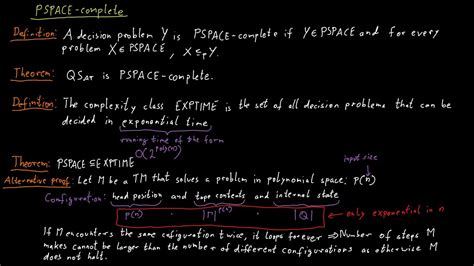 PSPACE-complete
Definition: A decision problem Y is PSPACE-complete if Y ∈ PSPACE and for every
problem X ∈ PSPACE, X ≤ₚ Y.
Theorem: QSAT is PSPACE-complete.
Definition: The complexity class EXPTIME is the set of all decision problems that can be
decided in exponential time
running time of the form
O(2^poly(n))
Theorem: PSPACE ⊆ EXPTIME
input size
Alternative proof: Let M be a TM that solves a problem in polynomial space; p(n)
Configuration: head position and tape contents and internal state
p(n) · |Γ|^p(n) · |Q| ← only exponential in n
If M encounters the same configuration twice, it loops forever ⇒ Number of steps M
makes cannot be larger than the number of different configurations as otherwise M
does not halt.